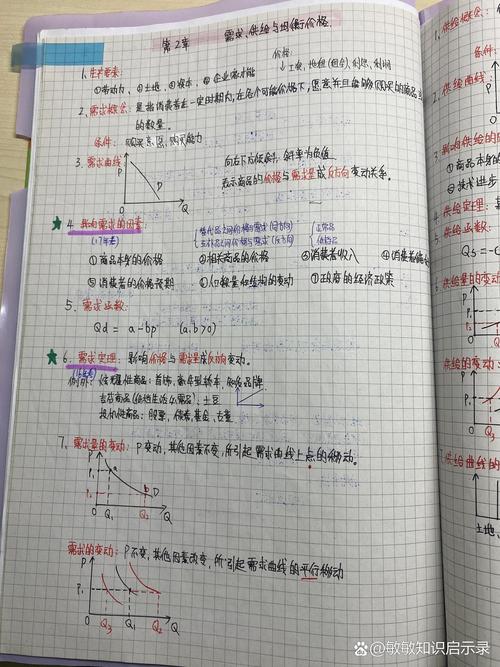 第2章 需求、供给与均衡价格.
价格:
1. 生产要素: 工资、地租(租金)、利息、利润
①劳动力、②土地、③资本、④企业家才能
2. 需求概念: 是指消费者在一定时期内, 在各个可能价格下, 愿意并且能够购买的商品
的数量。
条件: 购买意愿、购买能力
3. 需求曲线
P
D
Q
向右下方倾斜, 斜率为负值
表示商品的价格与需求量成反方向变动关系。
4. 影响需求的因素:
替代品之间价格与需求(同方向)
互补品之间价格与需求(反方向)
正常品
①商品本身的价格 ②相关商品的价格 ③消费者收入 ④消费者偏
⑤消费者的价格预期 ⑥人口数量和结构的变动 ⑦政府的经济政策
5. 需求函数:
Qd = a-bp (a.b>0)
6. 需求定理: 影响价格与需求量成反方向变动。
例外: 炫耀性商品: 首饰、豪华型轿车、
吉芬商品(低档生活必需品): 土豆
投机性商品: 股票、债券、黄金、古董
7. 需求量的变动: P变动, 其他因素不变, 所引起需求曲线上点的移动。
P
P₁
a
b
D
Q₁ Q₂ Q
需求的变动: P不变, 其他因素改变, 所引起需求曲线的平行移动
P
P₁
Q₃ Q₁ Q₂ Q
1. 供给概念:
条件:
2. 供给曲线
3. 影响供给的
①商品本身
⑤技术进步
4. 供给定理:
5. 供给函数:
Qs = -c
供给量的变动
供给的变动
供给曲线的
土地、
@敏敏知识启示录